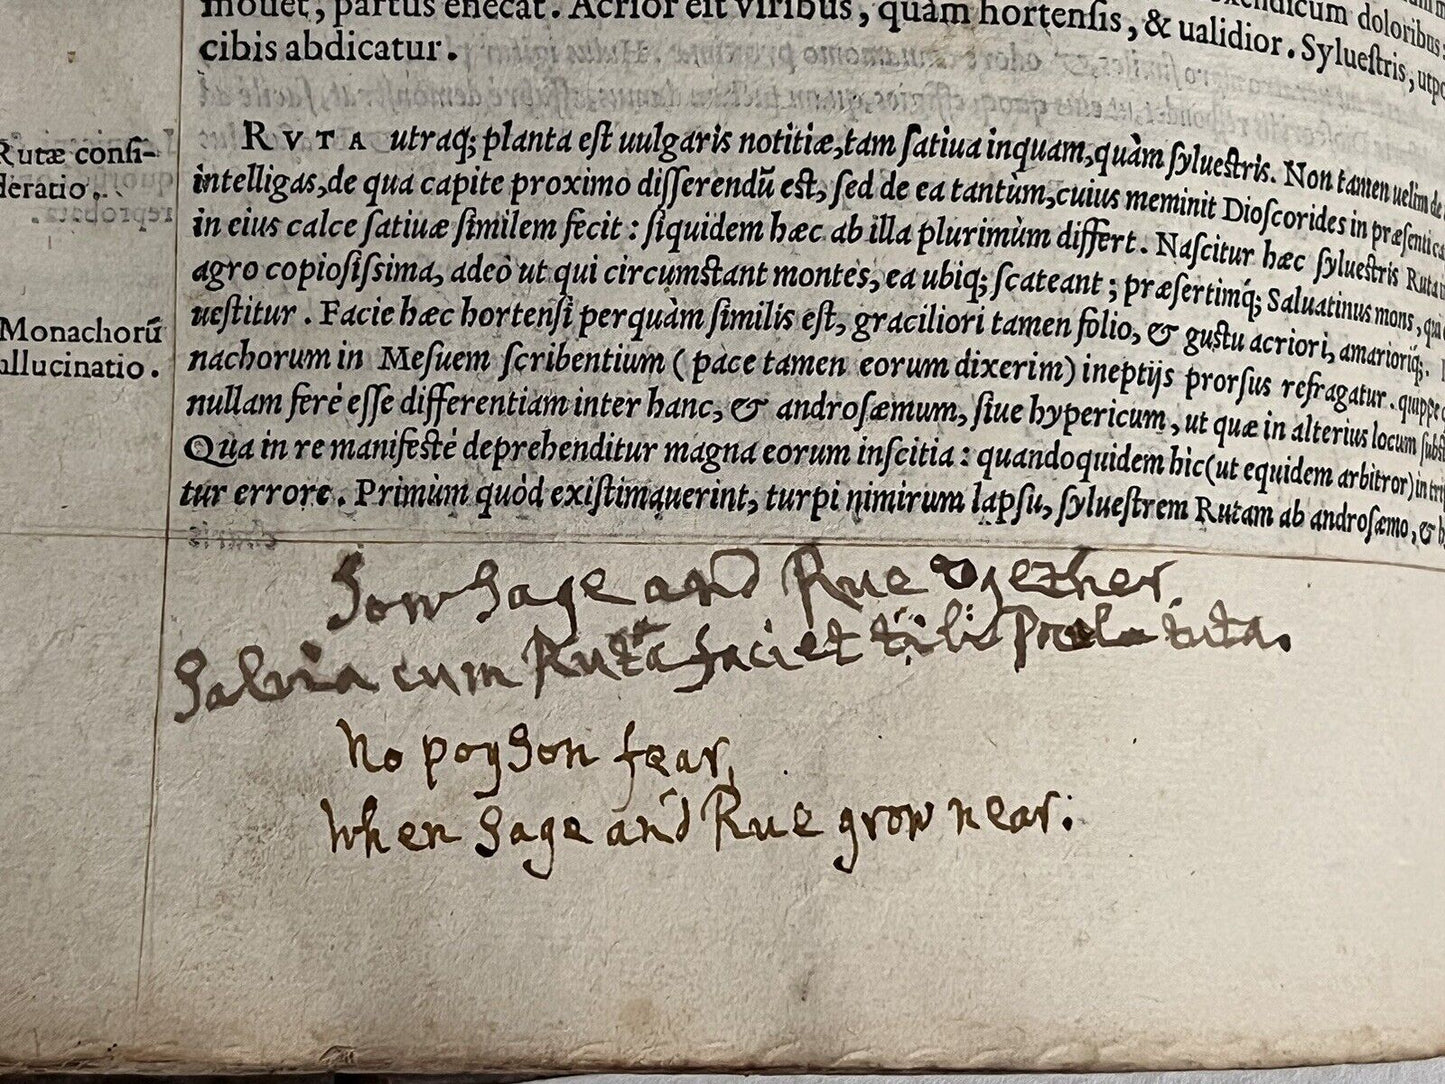 mouet, partus enecat. Acrior est viribus, quàm hortensis, & ualidior. Syluestris, utpo
cibis abdicatur.
Rutæ consi-
deratio.
RVTA utraq; planta est uulgaris notitiæ, tam satiua inquam, quàm syluestris. Non tamen uelim de
intelligas, de qua capite proximo disserendũ est, sed de ea tantùm, cuius meminit Dioscorides in præsenti ca
in eius calce satiuæ similem fecit: siquidem hæc ab illa plurimùm differt. Nascitur hæc syluestris Ruta
agro copiosissima, adeò ut qui circumstant montes, ea ubiq; scateant; præsertimq́; Saluatinus mons, qui
uestitur. Facie hæc hortensi perquàm similis est, graciliori tamen folio, & gustu acriori, amarioriq́;.
Monachorũ
allucinatio.
nachorum in Mesuem scribentium (pace tamen eorum dixerim) ineptijs prorsus refragatur. quippe
nullam ferè esse differentiam inter hanc, & androsæmum, siue hypericum, ut quæ in alterius locum subst
Qua in re manifestè deprehenditur magna eorum inscitia: quandoquidem hic (ut equidem arbitror) in tri
tur errore. Primùm quòd existimauerint, turpi nimirum lapsu, syluestrem Rutam ab androsæmo, & h
Sow Sage and Rue together
Salvia cum Ruta faciet tibi Pocula tuta.
No poyson fear,
When Sage and Rue grow near: